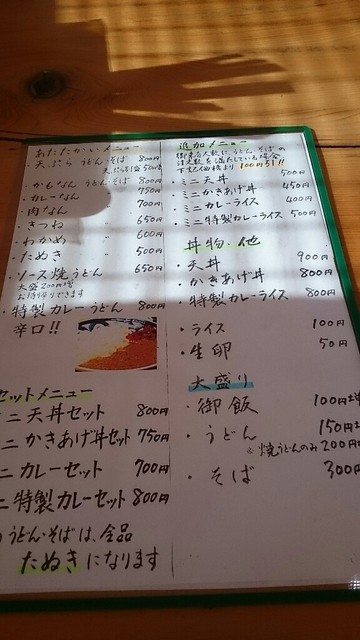 あたたかいメニュー
・天ぷら うどん・そば 800円
・かもなん うどん・そば 800円
・カレーなん 〃 750円
・肉なん 〃 700円
・きつね 〃 650円
・わかめ 〃 600円
・たぬき 〃 500円
・ソース焼うどん 650円
大盛200円増
お持帰りできます
・特製カレーうどん 800円
辛口!!
セットメニュー
ミニ天丼セット 800円
ミニかきあげ丼セット 750円
ミニカレーセット 700円
ミニ特製カレーセット 800円
うどん・そばは、全品
たぬきになります
追加メニュー
御来店人数に、うどん、そばの
注文数を満たしている場合
下記価格より100円引!!
・ミニ天丼 500円
・ミニかきあげ丼 450円
・ミニカレーライス 400円
・ミニ特製カレーライス 500円
丼物・他
・天丼 900円
・かきあげ丼 800円
・特製カレーライス 800円
・ライス 100円
・生卵 50円
大盛り
・御飯 100円増
・うどん 150円増
※焼うどんのみ200円
・そば 300円